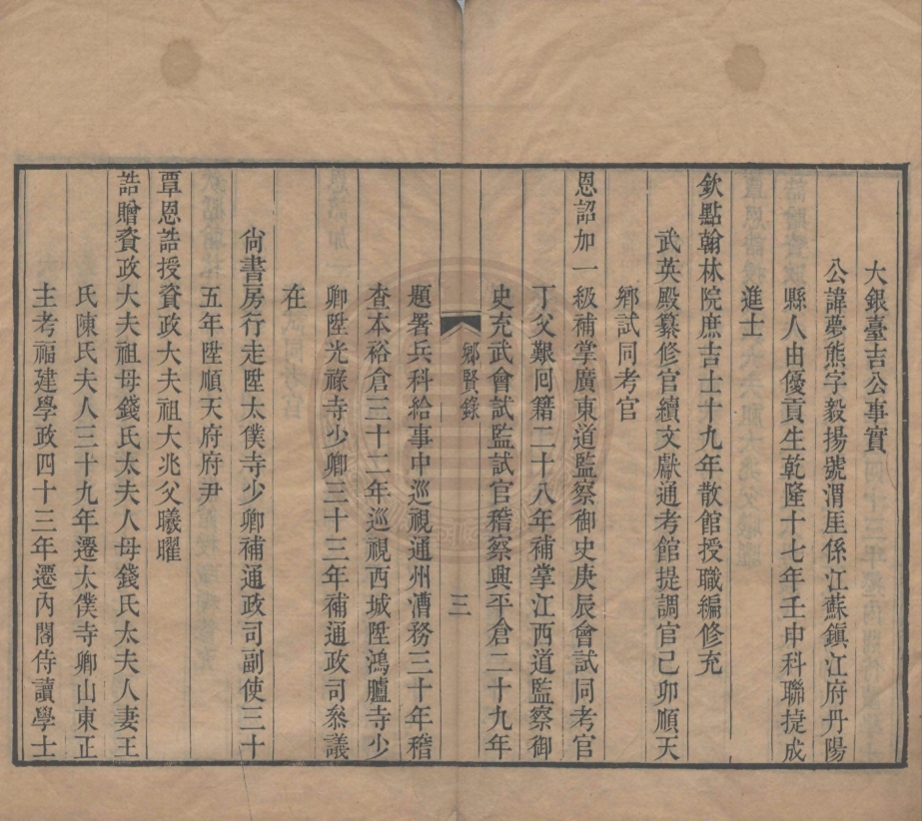 大銀臺吉公事實
公諱夢熊字毅揚號渭厓係江蘇鎭江府丹陽
縣人由優貢生乾隆十七年壬申科聯捷成
進士
欽點翰林院庶吉士十九年散館授職編修充
武英殿纂修官續文獻通考館提調官己卯順天
鄉試同考官
恩詔加一級補掌廣東道監察御史庚辰會試同考官
丁父艱囘籍二十八年補掌江西道監察御
史充武會試監試官稽察興平倉二十九年
鄉賢錄
三
題署兵科給事中巡視通州漕務三十年稽
查本裕倉三十二年巡視西城陞鴻臚寺少
卿陞光祿寺少卿三十三年補通政司叅議
在
尙書房行走陞太僕寺少卿補通政司副使三十
五年陞順天府府尹
覃恩誥授資政大夫祖大兆父曦曜
誥贈資政大夫祖母錢氏太夫人母錢氏太夫人妻王
氏陳氏夫人三十九年遷太僕寺卿山東正
主考福建學政四十三年遷內閣侍讀學士